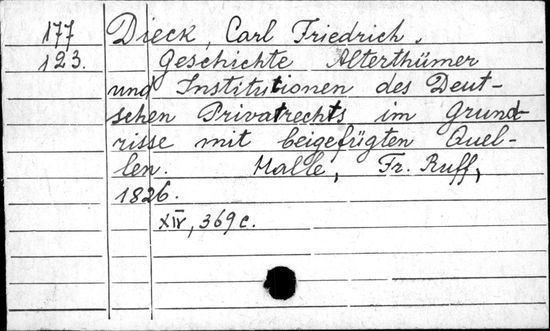 177 Dieck, Carl Friedrich.
123. Geschichte Alterthümer
und Institutionen des Deut-
schen Privatrechts im Grund-
risse mit beigefügten Quel-
len. Halle, Fr. Ruff,
1826.
XIV, 369 c.